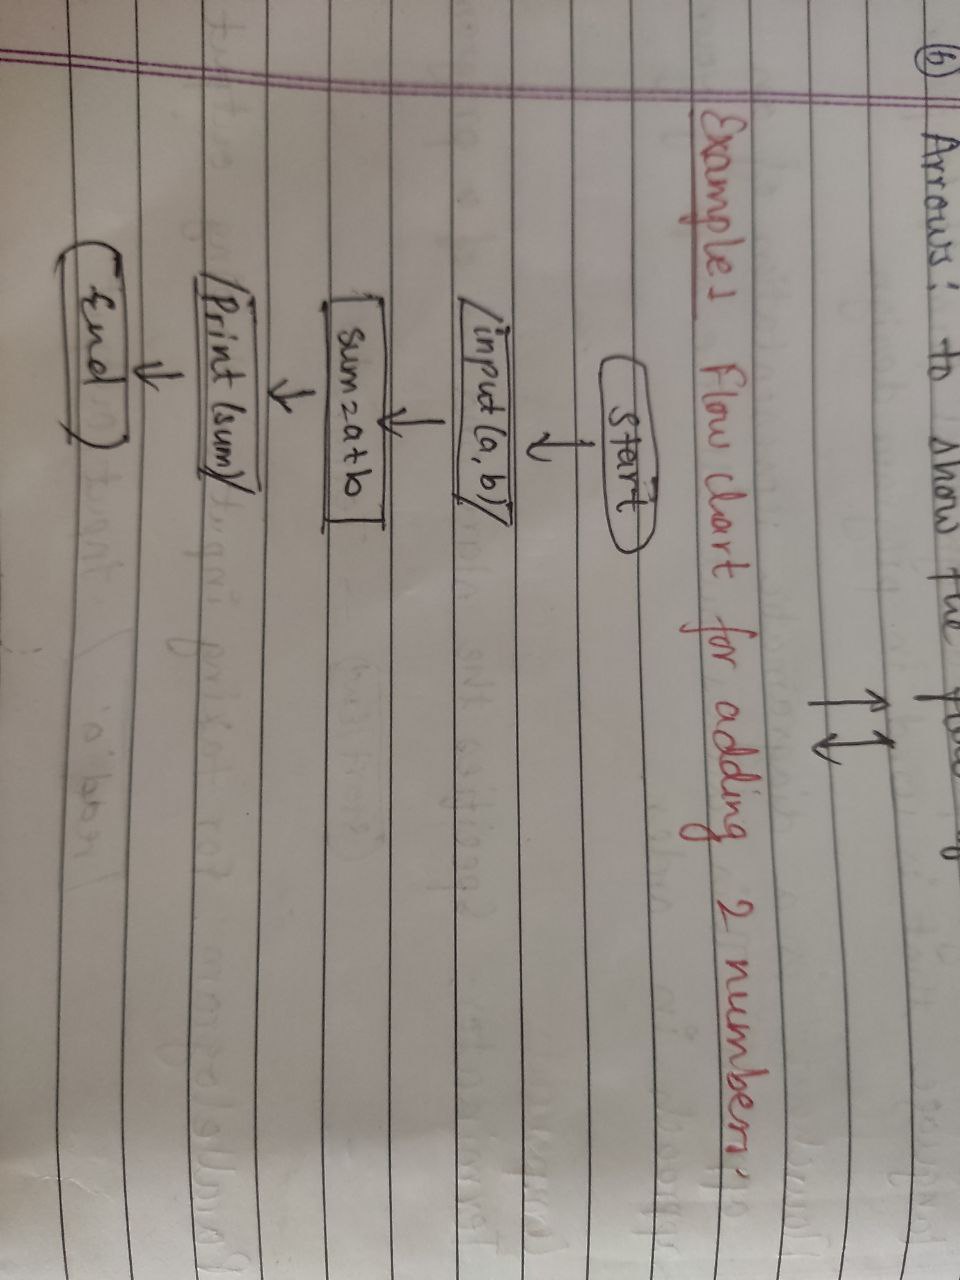 (5) Arrows: to show the flow of
Examples Flow chart for adding 2 numbers.
Start
input (a, b)
sum = a + b
Print (sum)
End